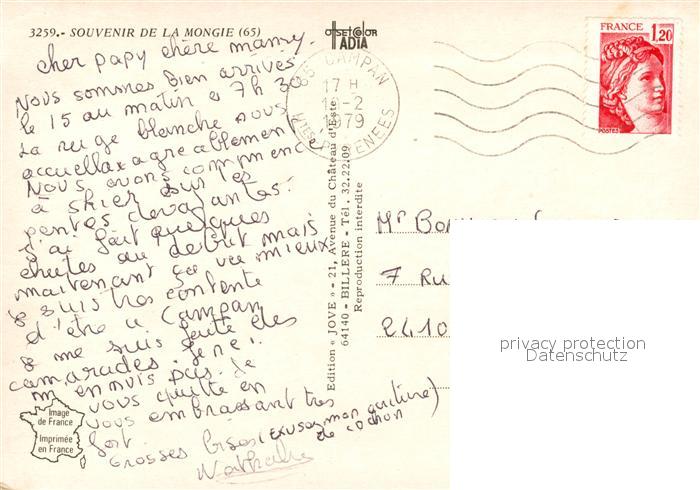 3259.- SOUVENIR DE LA MONGIE (65)
offset color
ADIA
cher papy chère mamy.
Nous sommes bien arrivés
le 15 au matin a 7h 30
La neige blanche nous
accuella agreablement
Nous avons commence
à skier sur les
pentes devalantes.
J'ai fait quelques
chutes au debut mais
maitenant ça va mieux
Je suis tres contente
d'être a Campan
Je me suis faite des
camarades. Je ne
m'ennuis pas. Je
vous quitte en
vous embrassant tres
fort.
Grosses bises (exusez mon écriture)
de cochon
Nathalie
Image
de France
Imprimée
en France
Edition « JOVE » - 21, Avenue du Château d'Este
64140 - BILLERE - Tél. 32.22.09
Reproduction interdite
65 CAMPAN
17 H
-2
1979
HTES PYRENEES
FRANCE
1,20
POSTES
Mr
7 Ru
2410
privacy protection
Datenschutz